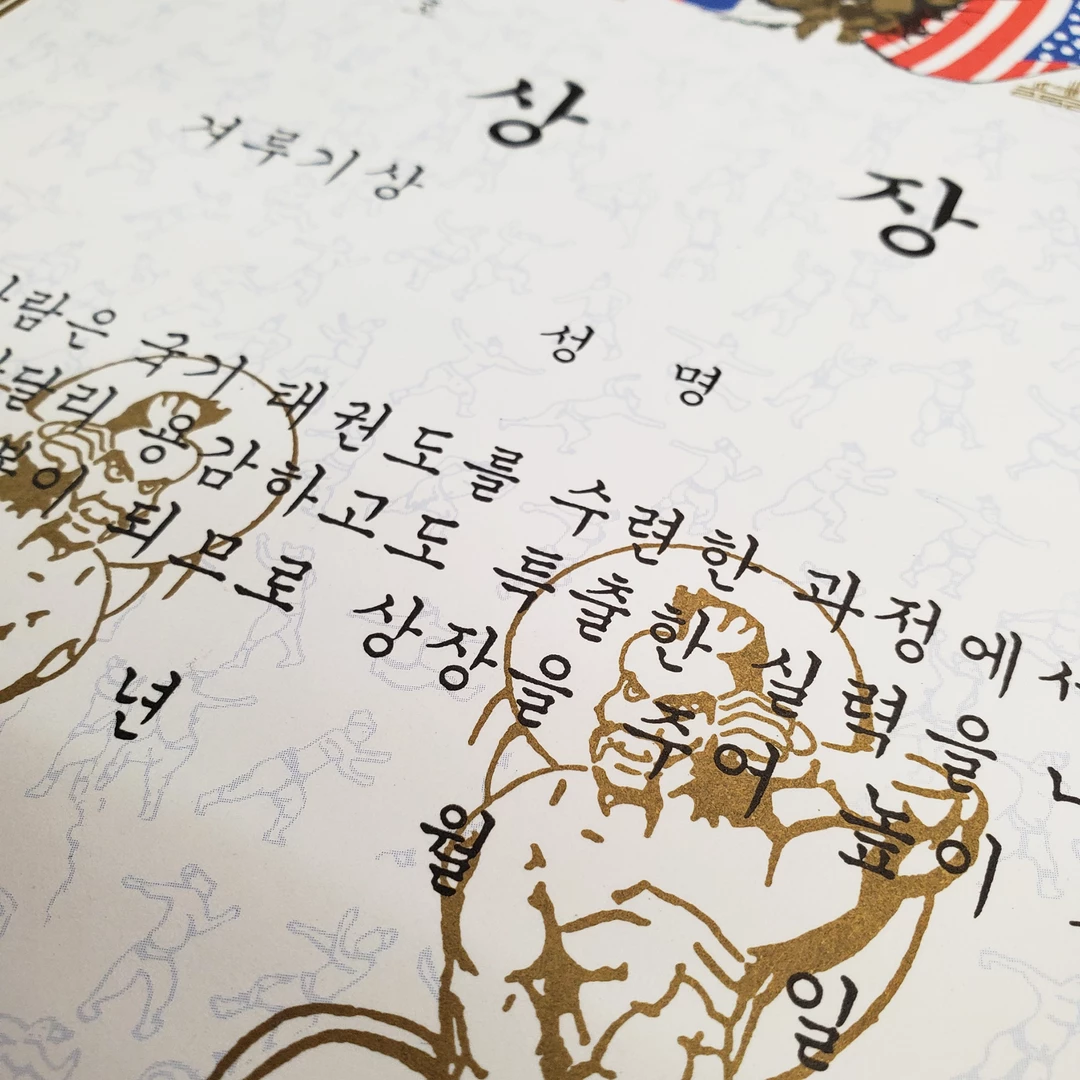 상 장
겨루기상
성 명
람은 국기 태권도를 수련한 과정에
달리 용감하고도 특출한 실력을
이 되므로 상장을 주여 높이
년 월 일